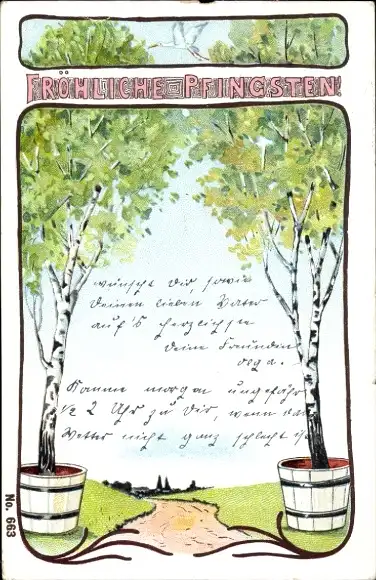 FRÖHLICHE PFINGSTEN!
wünscht Dir, sowie
Deinem lieben Vater
auf's herzlichste
Deine Freundin
Olga.
Komme morgen ungefähr
½ 2 Uhr zu Dir, wenn das
Wetter nicht ganz schlecht ist
No. 663